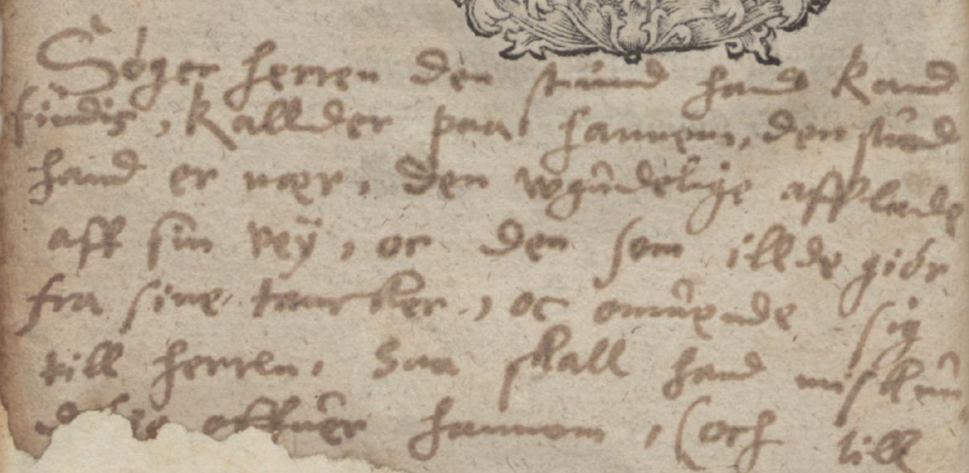 Søger herren den stund hand Kand
findis, Kallder paa hannem, den stund
hand er nær, den wgudelige afflade
aff sin veÿ, oc den som illde giør
fra sine tancker, oc omuende sig
till herren, saa skall hand miskun
offuer hannom, (och till